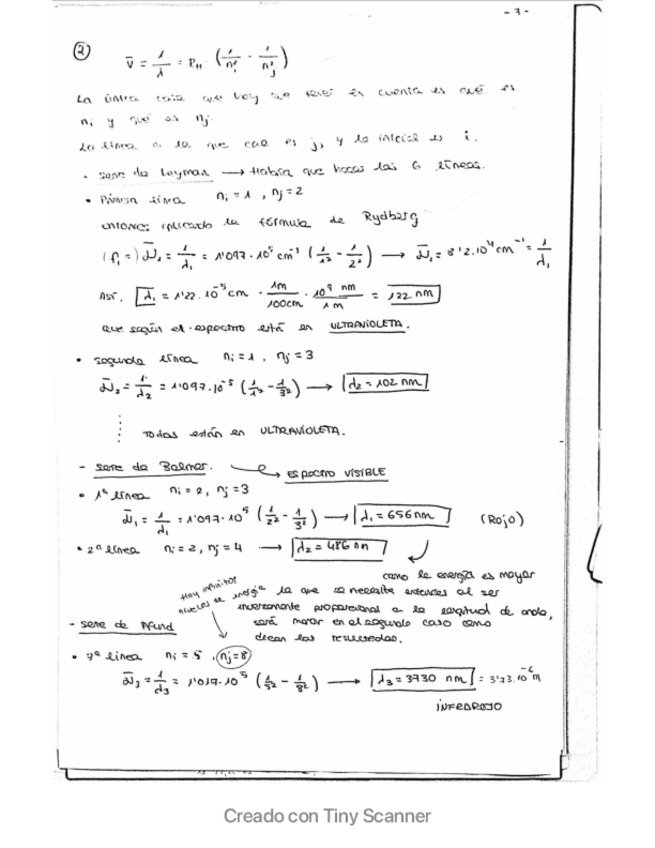 - 7 -
②
ν̄ = 1/λ = R_H (1/n²ᵢ - 1/n²ⱼ)
La única cosa que hay que tener en cuenta es qué es
nᵢ y qué es nⱼ.
La línea a la que cae es j, y la inicial es i.
- serie de Leyman → Habría que hacer las 6 líneas.
• Primera línea nᵢ = 1, nⱼ = 2
entonces aplicado la fórmula de Rydberg
(f₁ =) ν̄₁ = 1/λ₁ = 1'097·10⁵ cm⁻¹ (1/1² - 1/2²) → ν̄₁ = 8'2·10⁴ cm⁻¹ = 1/λ₁
Así, λ₁ = 1'22·10⁻⁵ cm · 1m/100cm · 10⁹ nm/1m = 122 nm
que según el espectro está en ULTRAVIOLETA.
• segunda línea nᵢ = 1, nⱼ = 3
ν̄₂ = 1/λ₂ = 1'097·10⁻⁵ (1/1² - 1/3²) → λ₂ = 102 nm
Todas están en ULTRAVIOLETA.
- serie de Balmer. → ESPECTRO VISIBLE
• 1ª línea nᵢ = 2, nⱼ = 3
ν̄₁ = 1/λ₁ = 1'097·10⁵ (1/2² - 1/3²) → λ₁ = 656 nm (Rojo)
• 2ª línea nᵢ = 2, nⱼ = 4 → λ₂ = 486 nm
como la energía es mayor
la que se necesita entonces al ser
inversamente proporcional a la longitud de onda,
será menor en el segundo caso como
dicen los resultados.
Hay infinitos
niveles de energía
- serie de Pfund
• 3ª línea nᵢ = 5, nⱼ = 8
ν̄₃ = 1/λ₃ = 1'017·10⁵ (1/5² - 1/8²) → λ₃ = 3730 nm = 3'73·10⁻⁶ m
INFRAROJO
Creado con Tiny Scanner